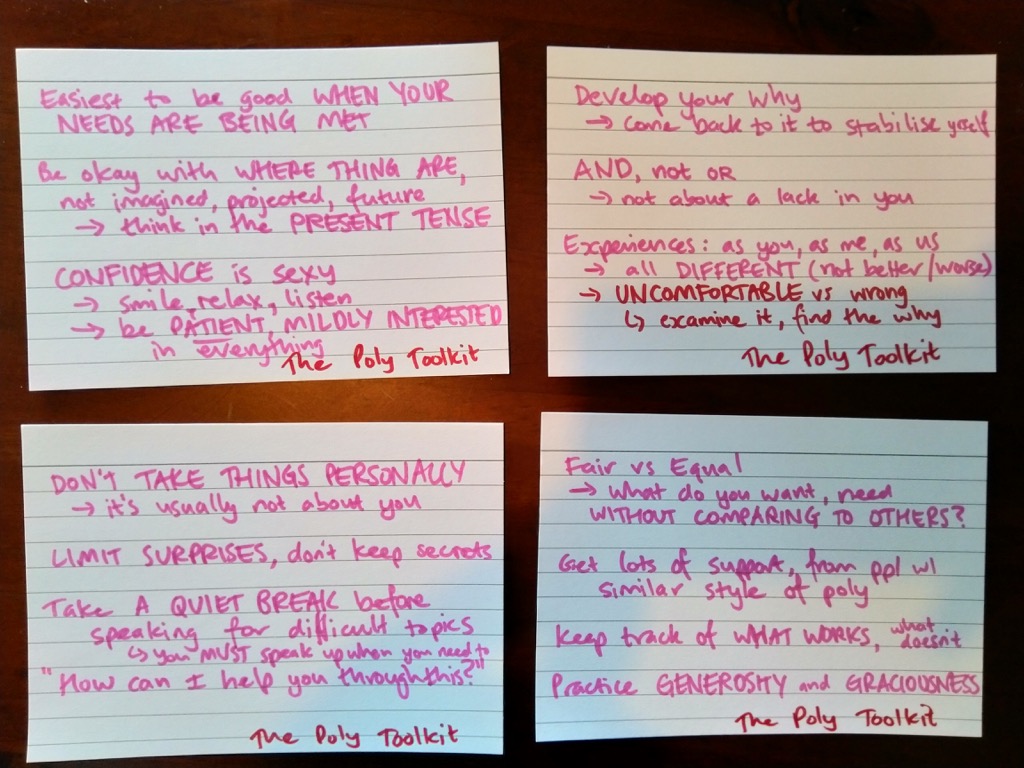 Easiest to be good WHEN YOUR
NEEDS ARE BEING MET
Be okay with WHERE THING ARE,
not imagined, projected, future
→ think in the PRESENT TENSE
CONFIDENCE is sexy
→ smile, relax, listen
→ be PATIENT, MILDLY INTERESTED
in everything
The Poly Toolkit
Develop your why
→ come back to it to stabilise yself
AND, not OR
→ not about a lack in you
Experiences: as you, as me, as us
→ all DIFFERENT (not better/worse)
→ UNCOMFORTABLE vs wrong
↳ examine it, find the why
The Poly Toolkit
DON'T TAKE THINGS PERSONALLY
→ it's usually not about you
LIMIT SURPRISES, don't keep secrets
Take A QUIET BREAK before
speaking for difficult topics
↳ you MUST speak up when you need to
"How can I help you through this?"
The Poly Toolkit
Fair vs Equal
→ What do you want, need
WITHOUT COMPARING TO OTHERS?
Get lots of support, from ppl w/
similar style of poly
Keep track of WHAT WORKS, what doesn't
Practice GENEROSITY and GRACIOUSNESS
The Poly Toolkit